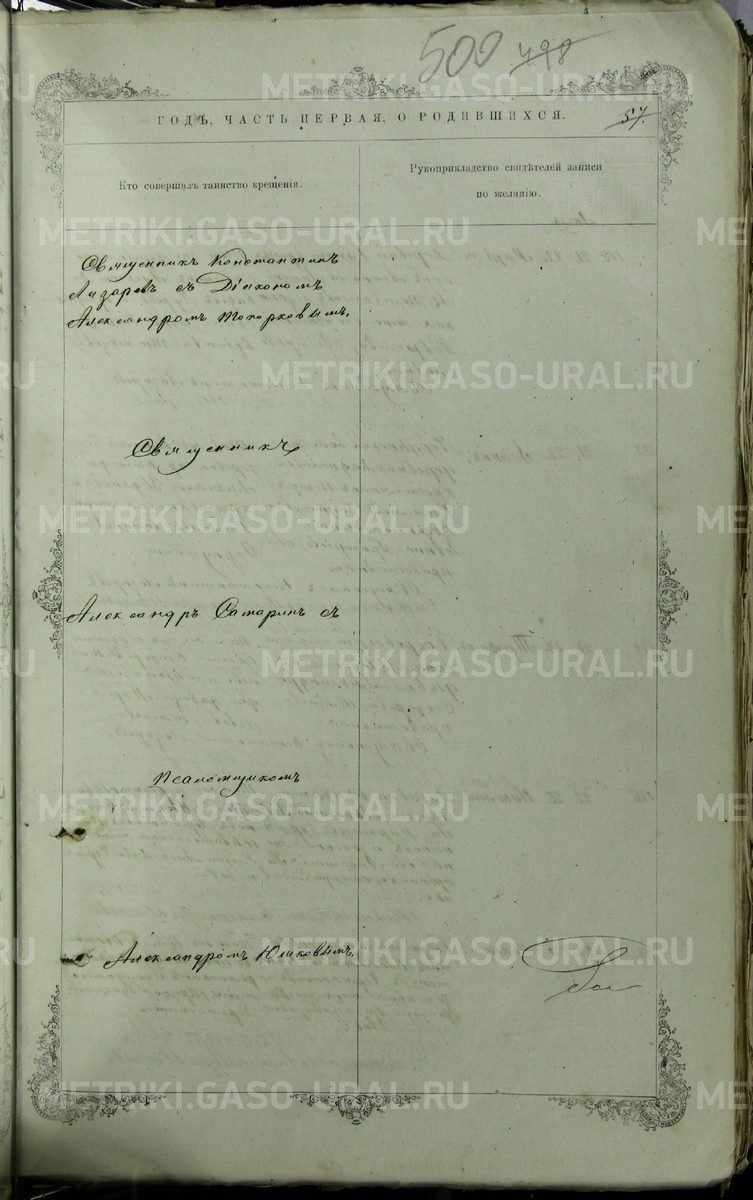 500 498
ГОДЪ, ЧАСТЬ ПЕРВАЯ, О РОДИВШИХСЯ.
57.
Кто совершалъ таинство крещенія.
Рукоприкладство свидѣтелей записи
по желанію.
Священникъ Константинъ
Лазаревъ съ Діакономъ
Александромъ Топорковымъ.
Священникъ
Александръ Самаринъ съ
Псаломщикомъ
Александромъ Юшковымъ.
METRIKI.GASO-URAL.RU